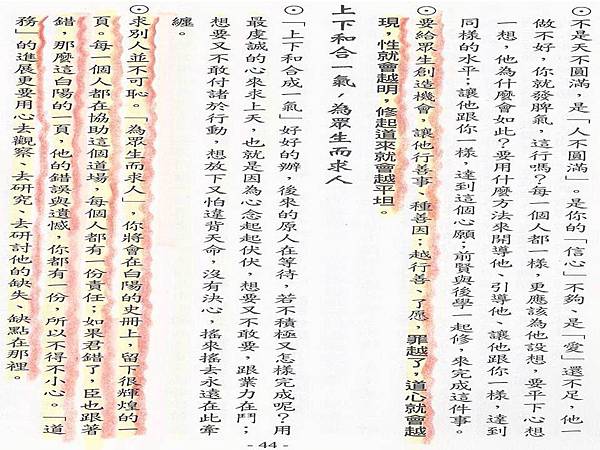 ⊙不是天不圓滿，是「人不圓滿」。是你的「信心」不夠、是「愛」還不足，他一
做不好，你就發脾氣，這行嗎？每一個人都一樣，更應該為他設想，要平下心想
一想，他為什麼會如此？要用什麼方法來開導他、引導他、讓他跟你一樣，達到
同樣的水平；讓他跟你一樣，達到這個心願；前賢與後學一起修，來完成這件事。
⊙要給眾生創造機會，讓他行善事、種善因；越行善、了愿，罪越了，道心就會越
現，性就會越明，修起道來就會越平坦。
上下和合一氣，為眾生而求人
⊙「上下和合成一氣」好好的辦，後來的原人在等待，若不積極又怎樣完成呢？用
最虔誠的心來求上天，也就是因為心念起起伏伏，想要又不敢要，跟業力在鬥；
想要又不敢付諸於行動，想放下又怕違背天命，沒有決心，搖來搖去永遠在此牽
纏。
⊙求別人並不可恥。「為眾生而求人」，你將會在白陽的史冊上，留下很輝煌的一
頁。每一個人都在協助這個道場，每個人都有一份責任；如果君錯了，臣也跟著
錯，那麼這白陽的一頁，他的錯誤與遺憾，你都有一份，所以不得不小心。「道
務」的進展更要用心去觀察、去研究、去研討他的缺失、缺點在那裡。
- 44 -